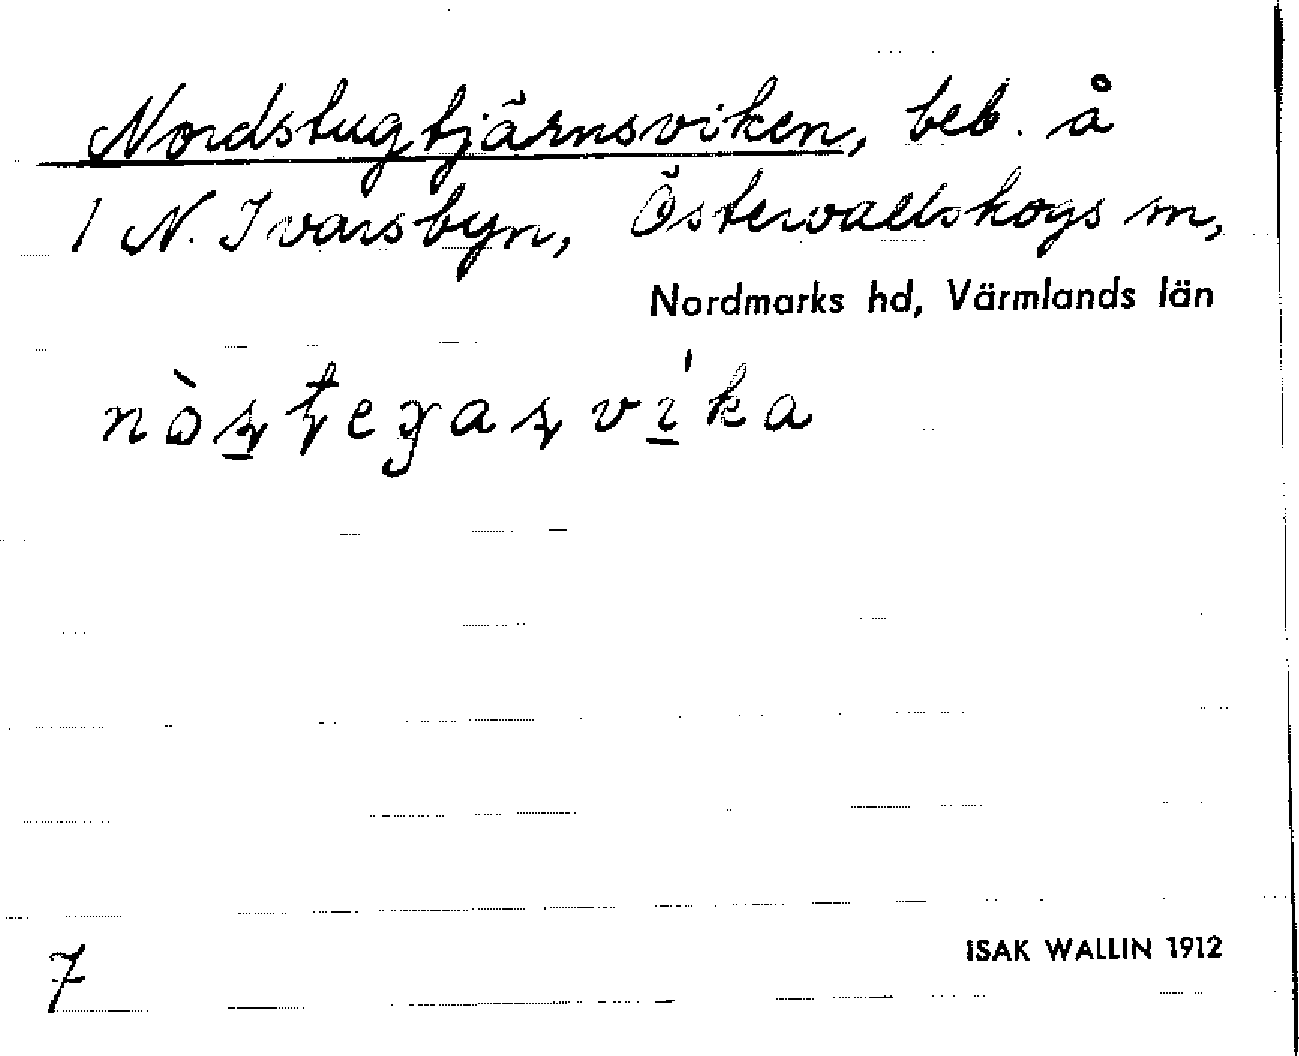 Nordstugtjärnsviken, beb. å
1 N. Ivarsbyn, Östervallskogs sn,
Nordmarks hd, Värmlands län
7
ISAK WALLIN 1912